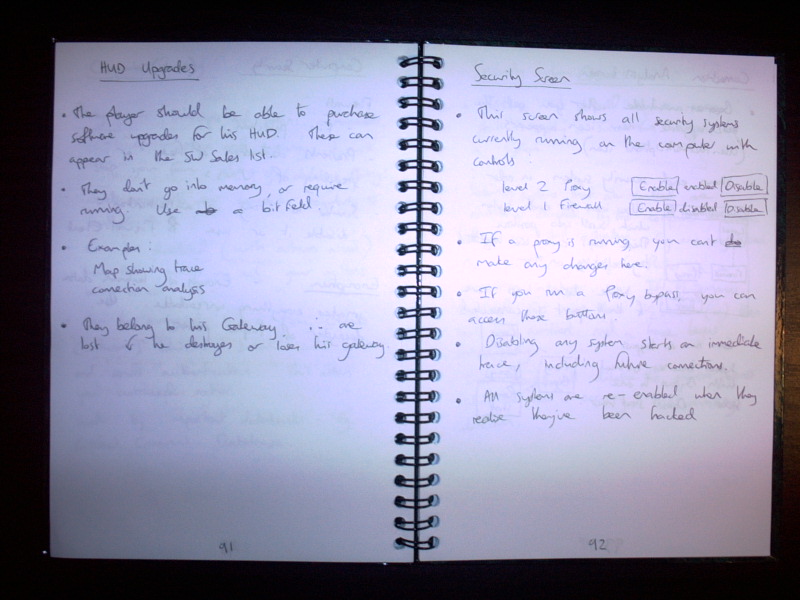 HUD Upgrades
• The player should be able to purchase
software upgrades for his HUD. These can
appear in the SW Sales list.
• They don't go into memory, or require
running. Use a bitfield.
• Examples:
Map showing trace
connection analysis
• They belong to his Gateway. ∴ are
lost if he destroyes or loses his gateway.
91
Security Screen
• This screen shows all security systems
currently running on the computer with
controls.
level 2 Proxy Enable enabled Disable
level 1 Firewall Enable disabled Disable
• If a proxy is running you can't
make any changes here.
• If you run a Proxy bypass, you can
access these buttons.
• Disabling any system starts an immediate
trace, including future connections.
• All systems are re-enabled when they
realise they've been hacked
92